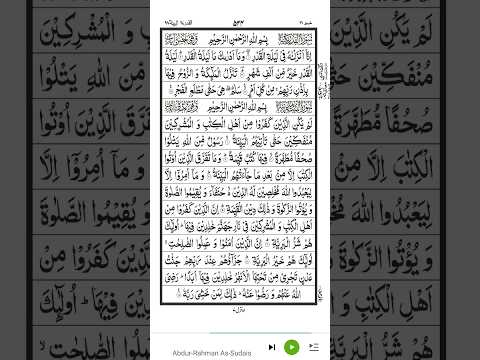 بِسْمِ اللّٰهِ الرَّحْمٰنِ الرَّحِيْمِ
اِنَّاۤ اَنْزَلْنٰهُ فِيْ لَيْلَةِ الْقَدْرِ وَ مَاۤ اَدْرٰىكَ مَا لَيْلَةُ الْقَدْرِ لَيْلَةُ
الْقَدْرِ خَيْرٌ مِّنْ اَلْفِ شَهْرٍ تَنَزَّلُ الْمَلٰٓئِكَةُ وَ الرُّوْحُ فِيْهَا
بِاِذْنِ رَبِّهِمْ مِنْ كُلِّ اَمْرٍ سَلٰمٌ هِيَ حَتّٰى مَطْلَعِ الْفَجْرِ
بِسْمِ اللّٰهِ الرَّحْمٰنِ الرَّحِيْمِ
لَمْ يَكُنِ الَّذِيْنَ كَفَرُوْا مِنْ اَهْلِ الْكِتٰبِ وَ الْمُشْرِكِيْنَ
مُنْفَكِّيْنَ حَتّٰى تَاْتِيَهُمُ الْبَيِّنَةُ رَسُوْلٌ مِّنَ اللّٰهِ يَتْلُوْا
صُحُفًا مُّطَهَّرَةً فِيْهَا كُتُبٌ قَيِّمَةٌ وَ مَا تَفَرَّقَ الَّذِيْنَ اُوْتُوا
الْكِتٰبَ اِلَّا مِنْۢ بَعْدِ مَا جَآءَتْهُمُ الْبَيِّنَةُ وَ مَاۤ اُمِرُوْۤا اِلَّا
لِيَعْبُدُوا اللّٰهَ مُخْلِصِيْنَ لَهُ الدِّيْنَ حُنَفَآءَ وَ يُقِيْمُوا الصَّلٰوةَ
وَ يُؤْتُوا الزَّكٰوةَ وَ ذٰلِكَ دِيْنُ الْقَيِّمَةِ اِنَّ الَّذِيْنَ كَفَرُوْا مِنْ
اَهْلِ الْكِتٰبِ وَ الْمُشْرِكِيْنَ فِيْ نَارِ جَهَنَّمَ خٰلِدِيْنَ فِيْهَا اُولٰٓئِكَ
هُمْ شَرُّ الْبَرِيَّةِ اِنَّ الَّذِيْنَ اٰمَنُوْا وَ عَمِلُوا الصّٰلِحٰتِ
اُولٰٓئِكَ هُمْ خَيْرُ الْبَرِيَّةِ جَزَآؤُهُمْ عِنْدَ رَبِّهِمْ جَنّٰتُ
عَدْنٍ تَجْرِيْ مِنْ تَحْتِهَا الْاَنْهٰرُ خٰلِدِيْنَ فِيْهَاۤ اَبَدًا رَضِيَ
اللّٰهُ عَنْهُمْ وَ رَضُوْا عَنْهُ ذٰلِكَ لِمَنْ خَشِيَ رَبَّهٗ
Abdur-Rahman As-Sudais